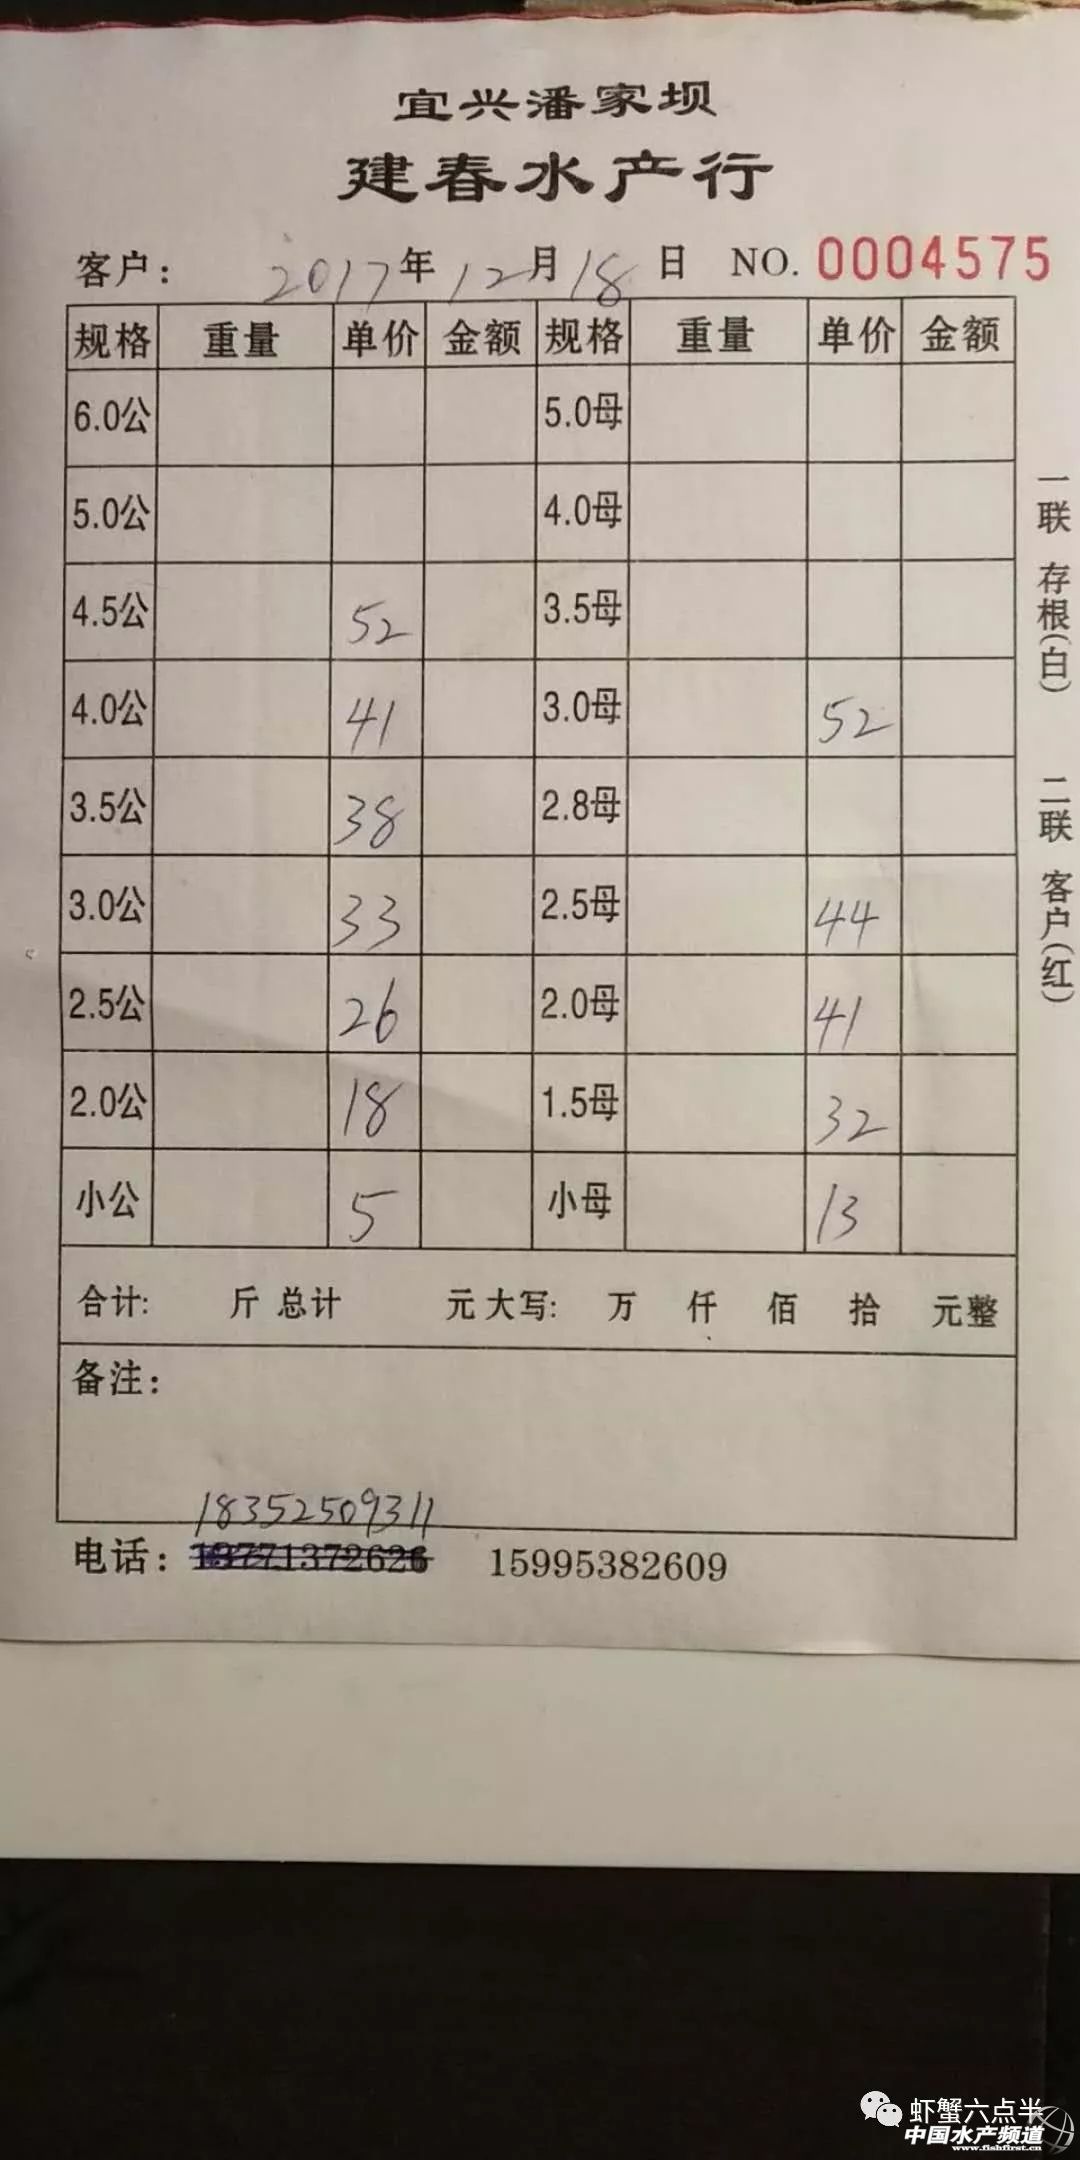 宜兴潘家坝
建春水产行
客户： 2017年12月18日 NO. 0004575
规格 重量 单价 金额 规格 重量 单价 金额
6.0公 5.0母
5.0公 4.0母
4.5公 52 3.5母
4.0公 41 3.0母 52
3.5公 38 2.8母
3.0公 33 2.5母 44
2.5公 26 2.0母 41
2.0公 18 1.5母 32
小公 5 小母 13
合计: 斤 总计 元 大写: 万 仟 佰 拾 元整
备注：
18352509311
电话：13771372626 15995382609
一联 存根(白) 二联 客户(红)
虾蟹六点半
中国水产频道
www.fishfirst.cn